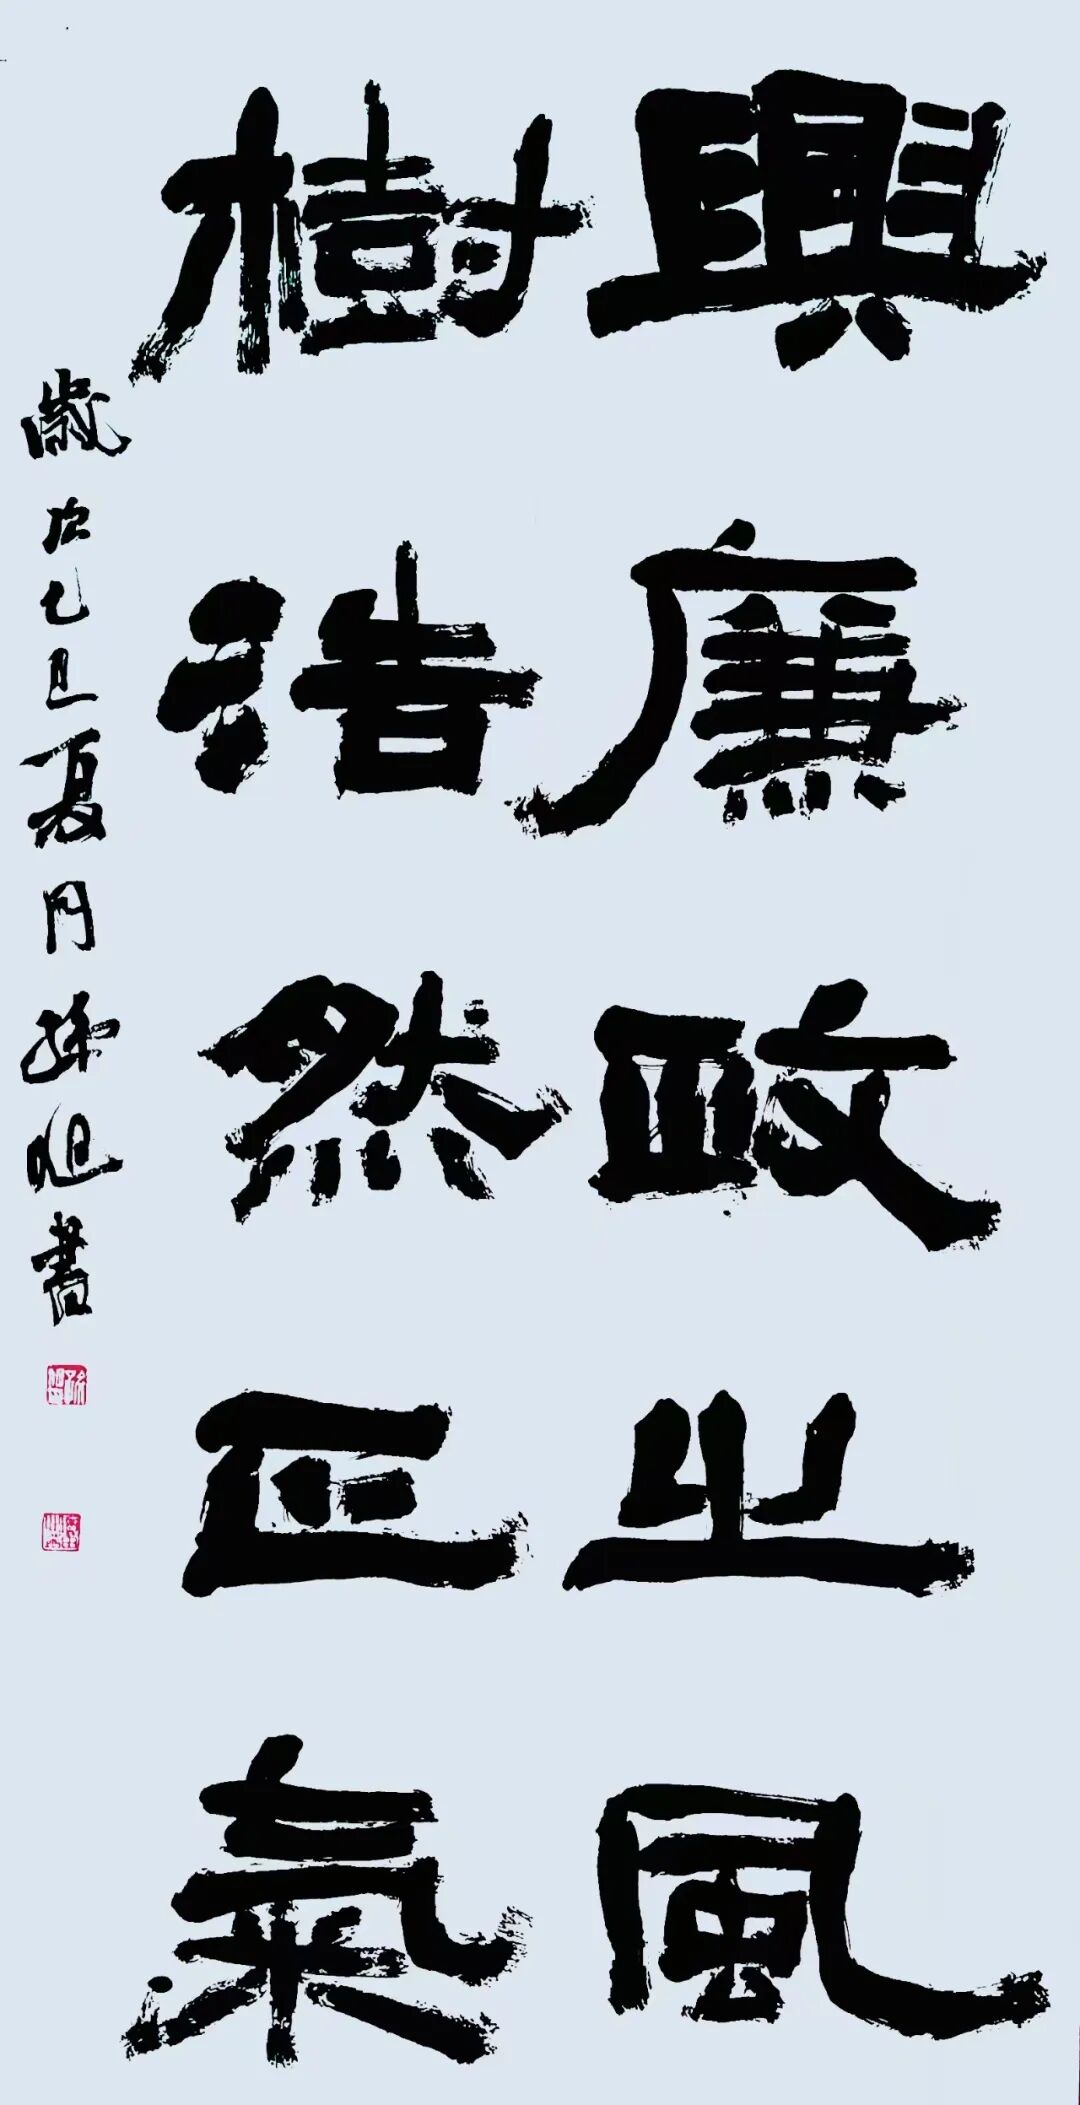 興廉政之風
樹浩然正氣
歲次乙巳夏月孫旭書